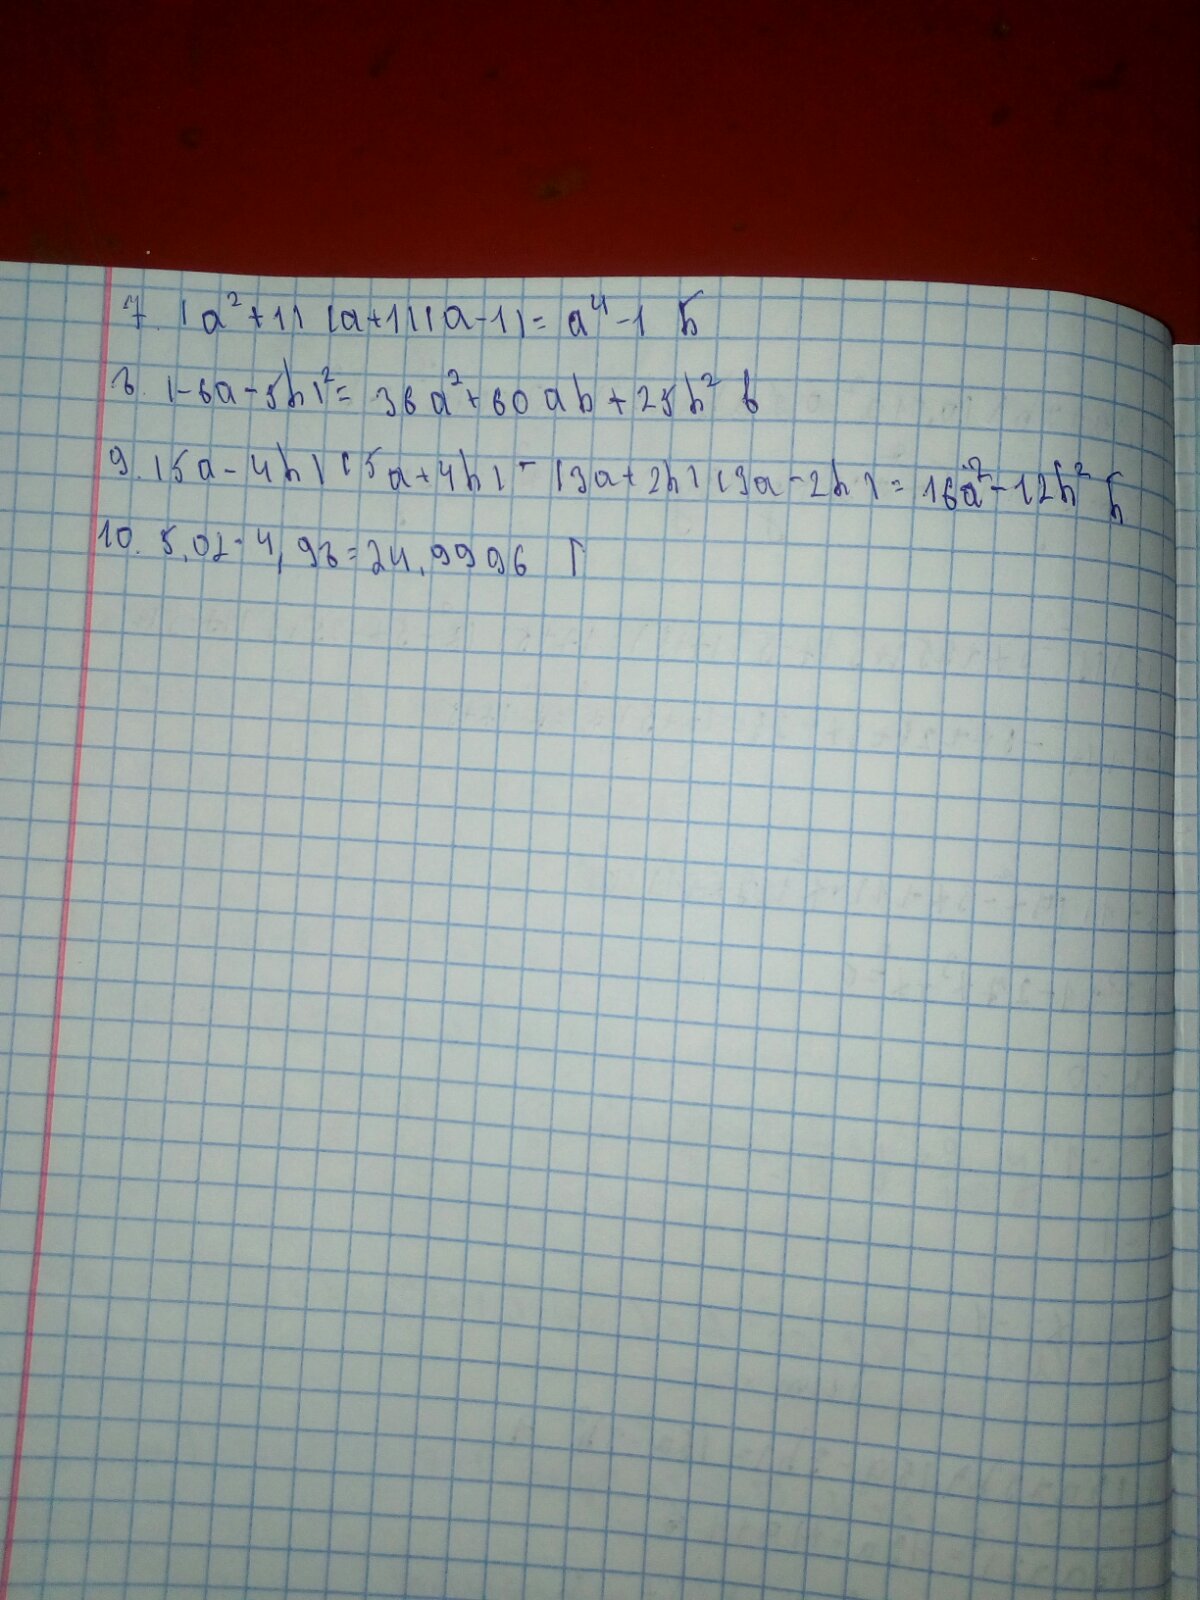 7. (a²+1)(a+1)(a-1)=a⁴-1 Б
8. (-6a-5b)²= 36a²+60ab+25b² в
9. (5a-4b)(5a+4b)-(3a+2b)(3a-2b)=16a²-12b² Б
10. 5,02·4,98=24,9996 Г